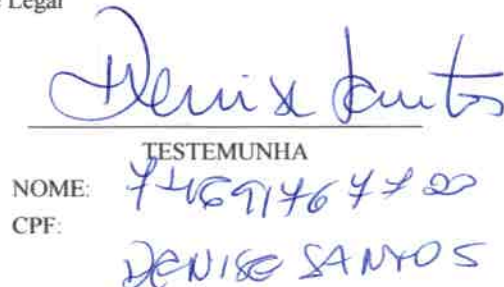 Legal
Denise Santos
TESTEMUNHA
NOME: 74691767720
CPF:
DENISE SANTOS